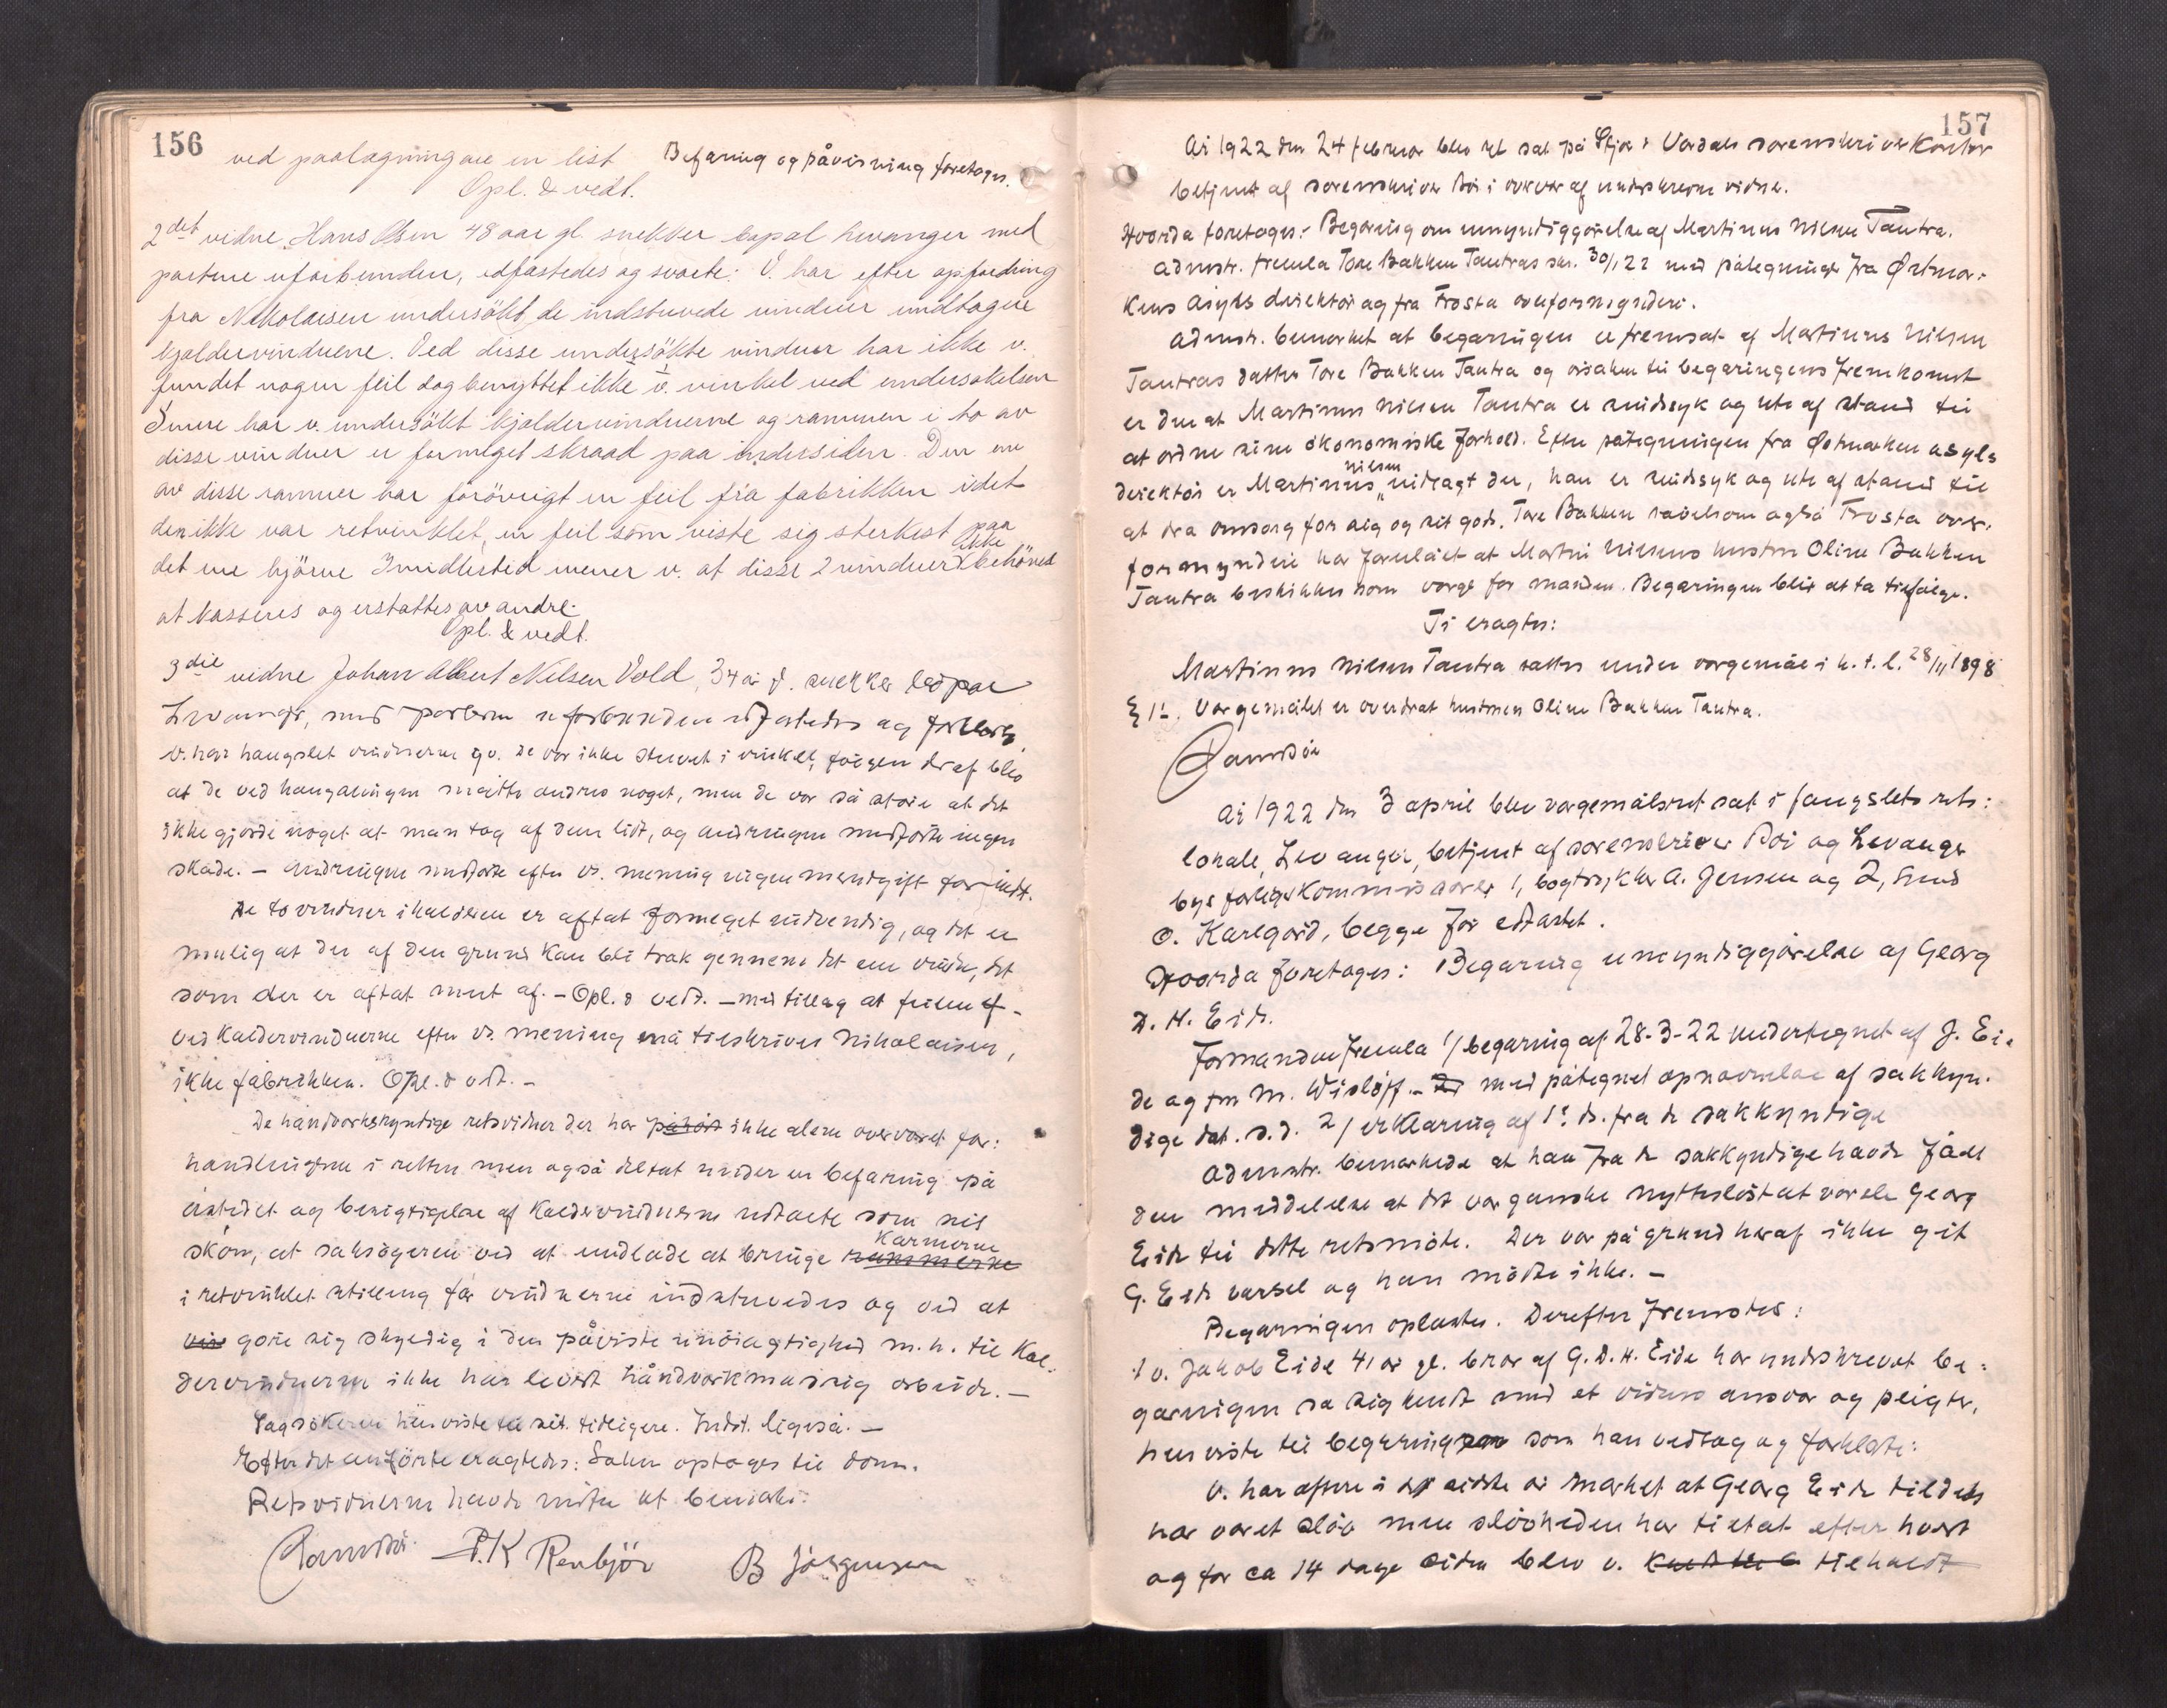 156
ved paalægning av en list Befaring og påvisning foretoges.
Opl. & vedt.
2det vidne Hans Olsen 48 aar gl. snekker bopæl Levanger med
partene uforbunden, edfæstedes og svarte: V. har efter opfordring
fra Nikolaisen undersökt de indstuvede vinduer undtagen
kjældervinduene. Ved disse undersökte vinduer har ikke v.
fundet nogen feil dog benyttet ikke v. vinkel ved undersøkelsen
Senere har v. undersökt kjældervinduerne og rammen i to av
disse vinduer er formeget skraad paa indersiden. Den ene
av disse rammer har forövrigt en feil fra fabrikken idet
den ikke var retvinklet, en feil som viste sig sterkest paa
det ene hjörne Imidlertid mener v. at disse 2 vinduer ikke behöved
at kasseres og erstattes av andre.
Opl. & vedt.
3die vidne Johan Albert Nilsen Vold, 34 år g. snekker bopæl
Levanger, med parterne uforbunden edfæstedes og forklarte
V. har hængslet vinduerne og v. de var ikke stuvet i vinkel, følgen deraf blev
at de ved hængslingen måtte ændres noget, men de var så store at det
ikke gjorde noget at man tog af dem lidt, og ændringen medførte ingen
skade. – Ændringen medførte efter vs. mening ingen merutgift for indst.
De to vinduer i kælderen er aftat formeget utvendig, og det er
mulig at der af den grund kan bli træk gennem det ene vindu, det
som der er aftat mest af. – Opl. & vedt. – med tillæg at feilen
ved kældervinduerne efter vs. mening må tilskrives Nikolaisen,
ikke fabrikken. Opl. & vedt. –
De håndverkskyndige retsvidner der har påhört ikke alene overværet for:
handlingerne i retten men også deltat under en befaring på
åstedet og besigtigelse af kældervinduerne uttalte som sit
skön, at saksögeren ved at undlade at bringe rammerne karmerne
i retvinklet stilling før vinduerne indstuvedes og ved at
vis gøre sig skyldig i den påviste unöiagtighed m. h. til kæl-
dervinduerne ikke har levert håndverkmæssig arbeide. –
Sagsökeren henviste til sit tidligere. Indst. ligeså. –
Efter det anförte eragtedes: Saken optages til dom.
Retsvidnerne havde intet at bemærke.
P.K Renbjör B Jörgensen
157
År 1922 den 24 februar blev ret sat på Stjør & Værdals sorenskriverkontor
betjent af sorenskriver Böi i overvær af underskrevne vidner.
Hvorda foretoges: Begæring om umyndiggjörelse af Martinus Nilsen Tautra.
Admstr. fremla Tore Bakken Tautras skr. 30/1 22 med påtegninger fra Østmar-
kens asyls direktör og fra Frosta overformynderi.
Admstr. bemærket at begæringen er fremsat af Martinus Nilsen
Tautras datter Tore Bakken Tautra og årsaken til begæringens fremkomst
er den at Martinus Nilsen Tautra er sindssyk og ute af stand til
at ordne sine ökonomiske forhold. Efter påtegningen fra Østmarken asyls
direktör er Martinus Nilsen indlagt der, han er sindssyk og ute af stand til
at dra omsorg for sig og sit gods. Tore Bakken såvelsom også Frosta over-
formynderi har foreslået at Martin Nilsens hustru Oline Bakken
Tautra beskikkes som værge for manden. Begæringen blir at ta tilfölge.
Ti eragtes:
Martinus Nilsen Tautra sættes under værgemål i h. t. l. 28/11 1898
§ 1. Værgemålet er overdrat hustruen Oline Bakken Tautra.
År 1922 den 3 april blev værgemålsret sat i fængslets rets:
lokale, Levanger, betjent af sorenskriver Böi og Levanger
bys forligskommissærer 1, bogtrykker A. Jensen og 2, Smed
O. Karegård, begge för edfæstet.
Hvorda foretoges: Begæring umyndiggörelse af Georg
D. H. Eide.
Formanden fremla 1/ begæring af 28-3-22 undertegnet af J. Ei-
de og frn M. Wislöff. – med påtegnet opnævnelse af sakkyn-
dige dat. s. d. 2/ erklæring af 1. ds. fra de sakkyndige
Admstr. bemærkede at han fra de sakkyndige havde fåt
den meddelelse at det var ganske nytteslöst at varsle Georg
Eide til dette retsmöte. Der var på grund heraf ikke git
G. Eide varsel og han mödte ikke. –
Begæringen oplæstes. Derefter fremstod:
1 v. Jakob Eide 41 år gl. bror af G. D. H. Eide har underskrevet be-
gæringen sa sig kendt med et vidnes ansvar og pligter,
henviste til begæringen som han vedtog og forklarte:
V. har oftere i de sidste år mærket at Georg Eide tildels
har været slöv men slövheden har tiltat efter hvert
og for ca 14 dage siden blev v. tilkaldt